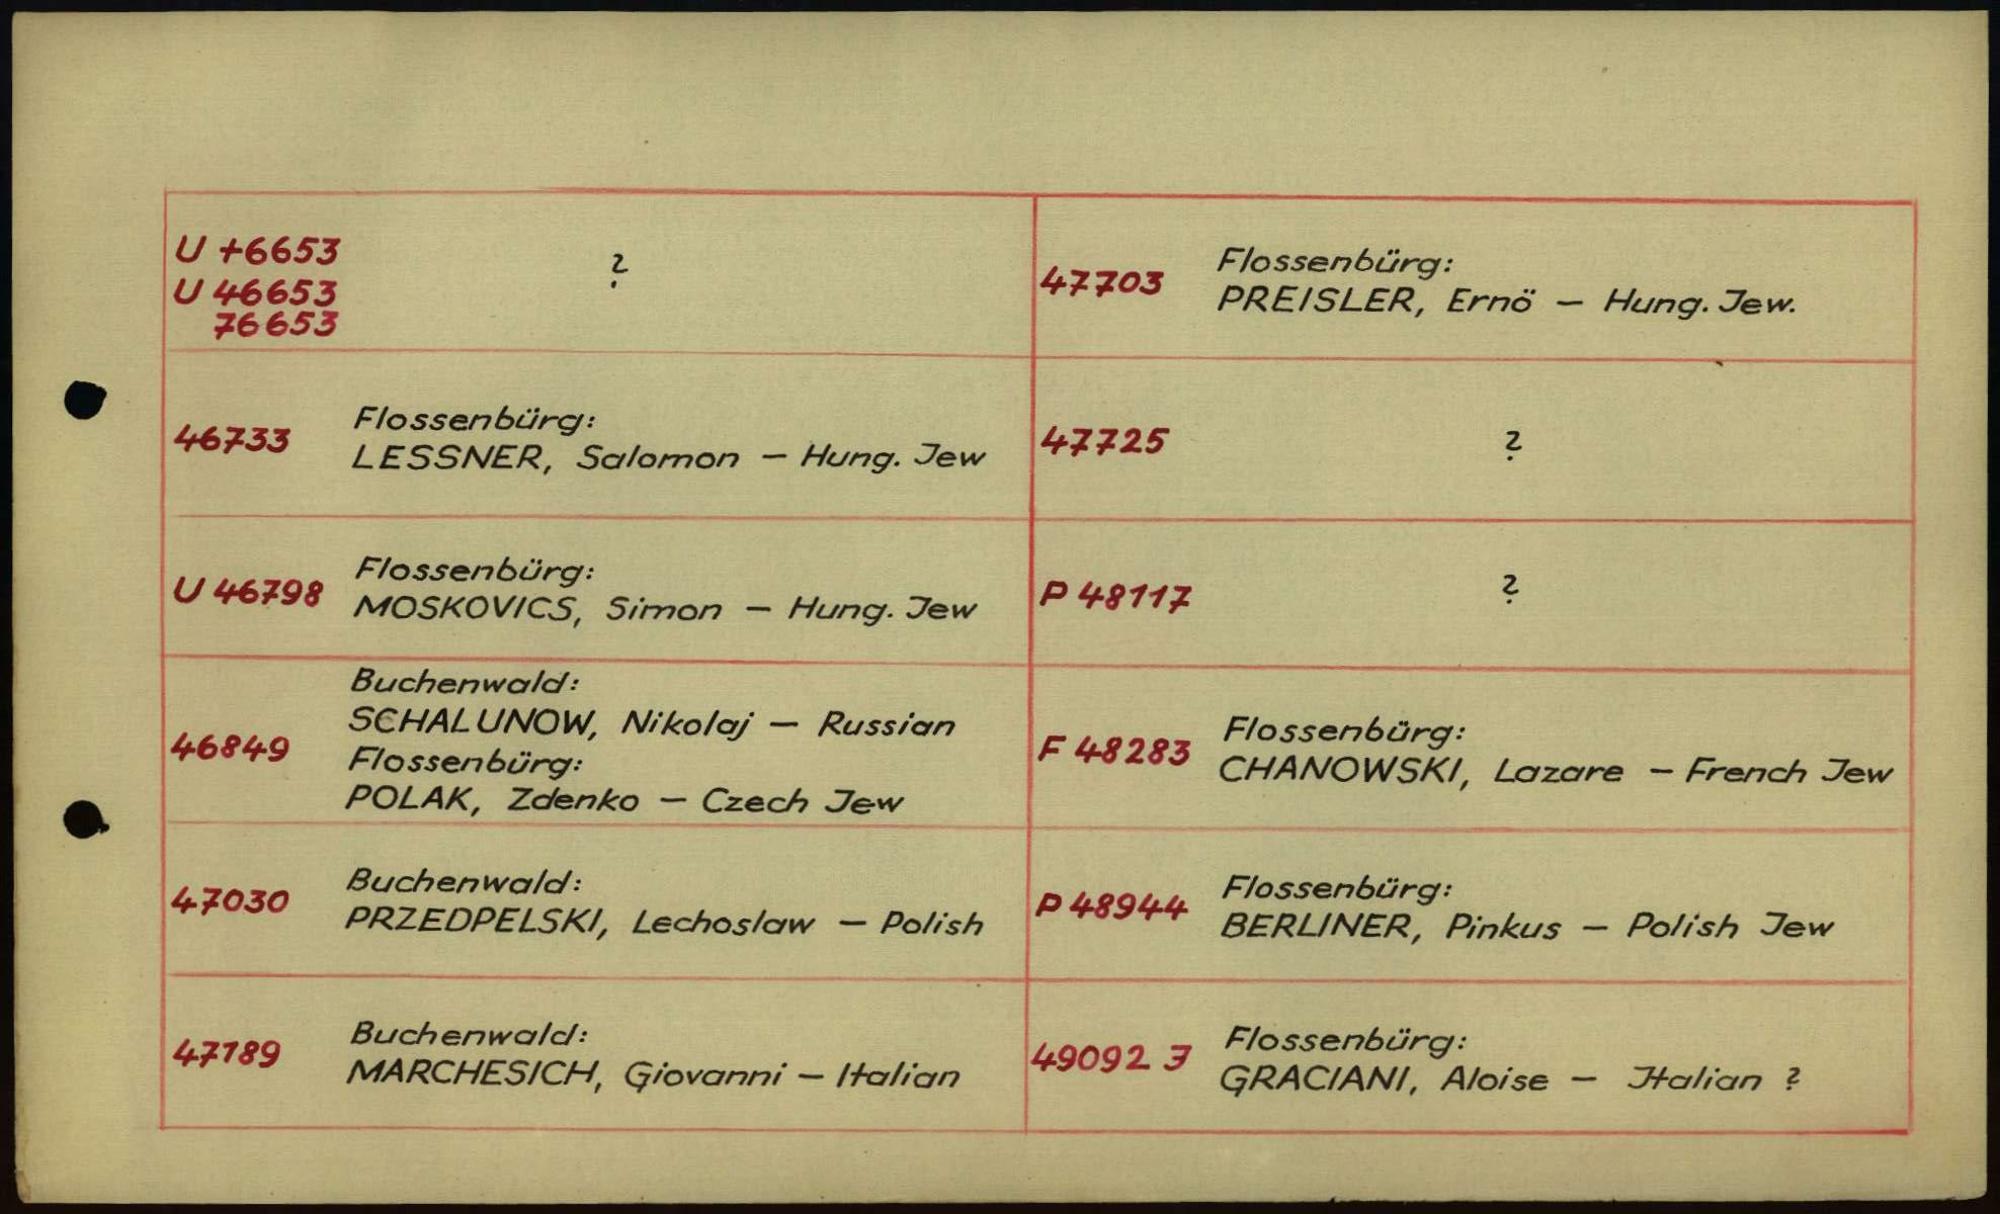 U +6653
U 46653
76653
?
46733
Flossenbürg:
LESSNER, Salomon – Hung. Jew
U 46798
Flossenbürg:
MOSKOVICS, Simon – Hung. Jew
46849
Buchenwald:
SCHALUNOW, Nikolaj – Russian
Flossenbürg:
POLAK, Zdenko – Czech Jew
47030
Buchenwald:
PRZEDPELSKI, Lechoslaw – Polish
47189
Buchenwald:
MARCHESICH, Giovanni – Italian
47703
Flossenbürg:
PREISLER, Ernö – Hung. Jew.
47725
?
P 48117
?
F 48283
Flossenbürg:
CHANOWSKI, Lazare – French Jew
P 48944
Flossenbürg:
BERLINER, Pinkus – Polish Jew
49092 J
Flossenbürg:
GRACIANI, Aloise – Italian ?